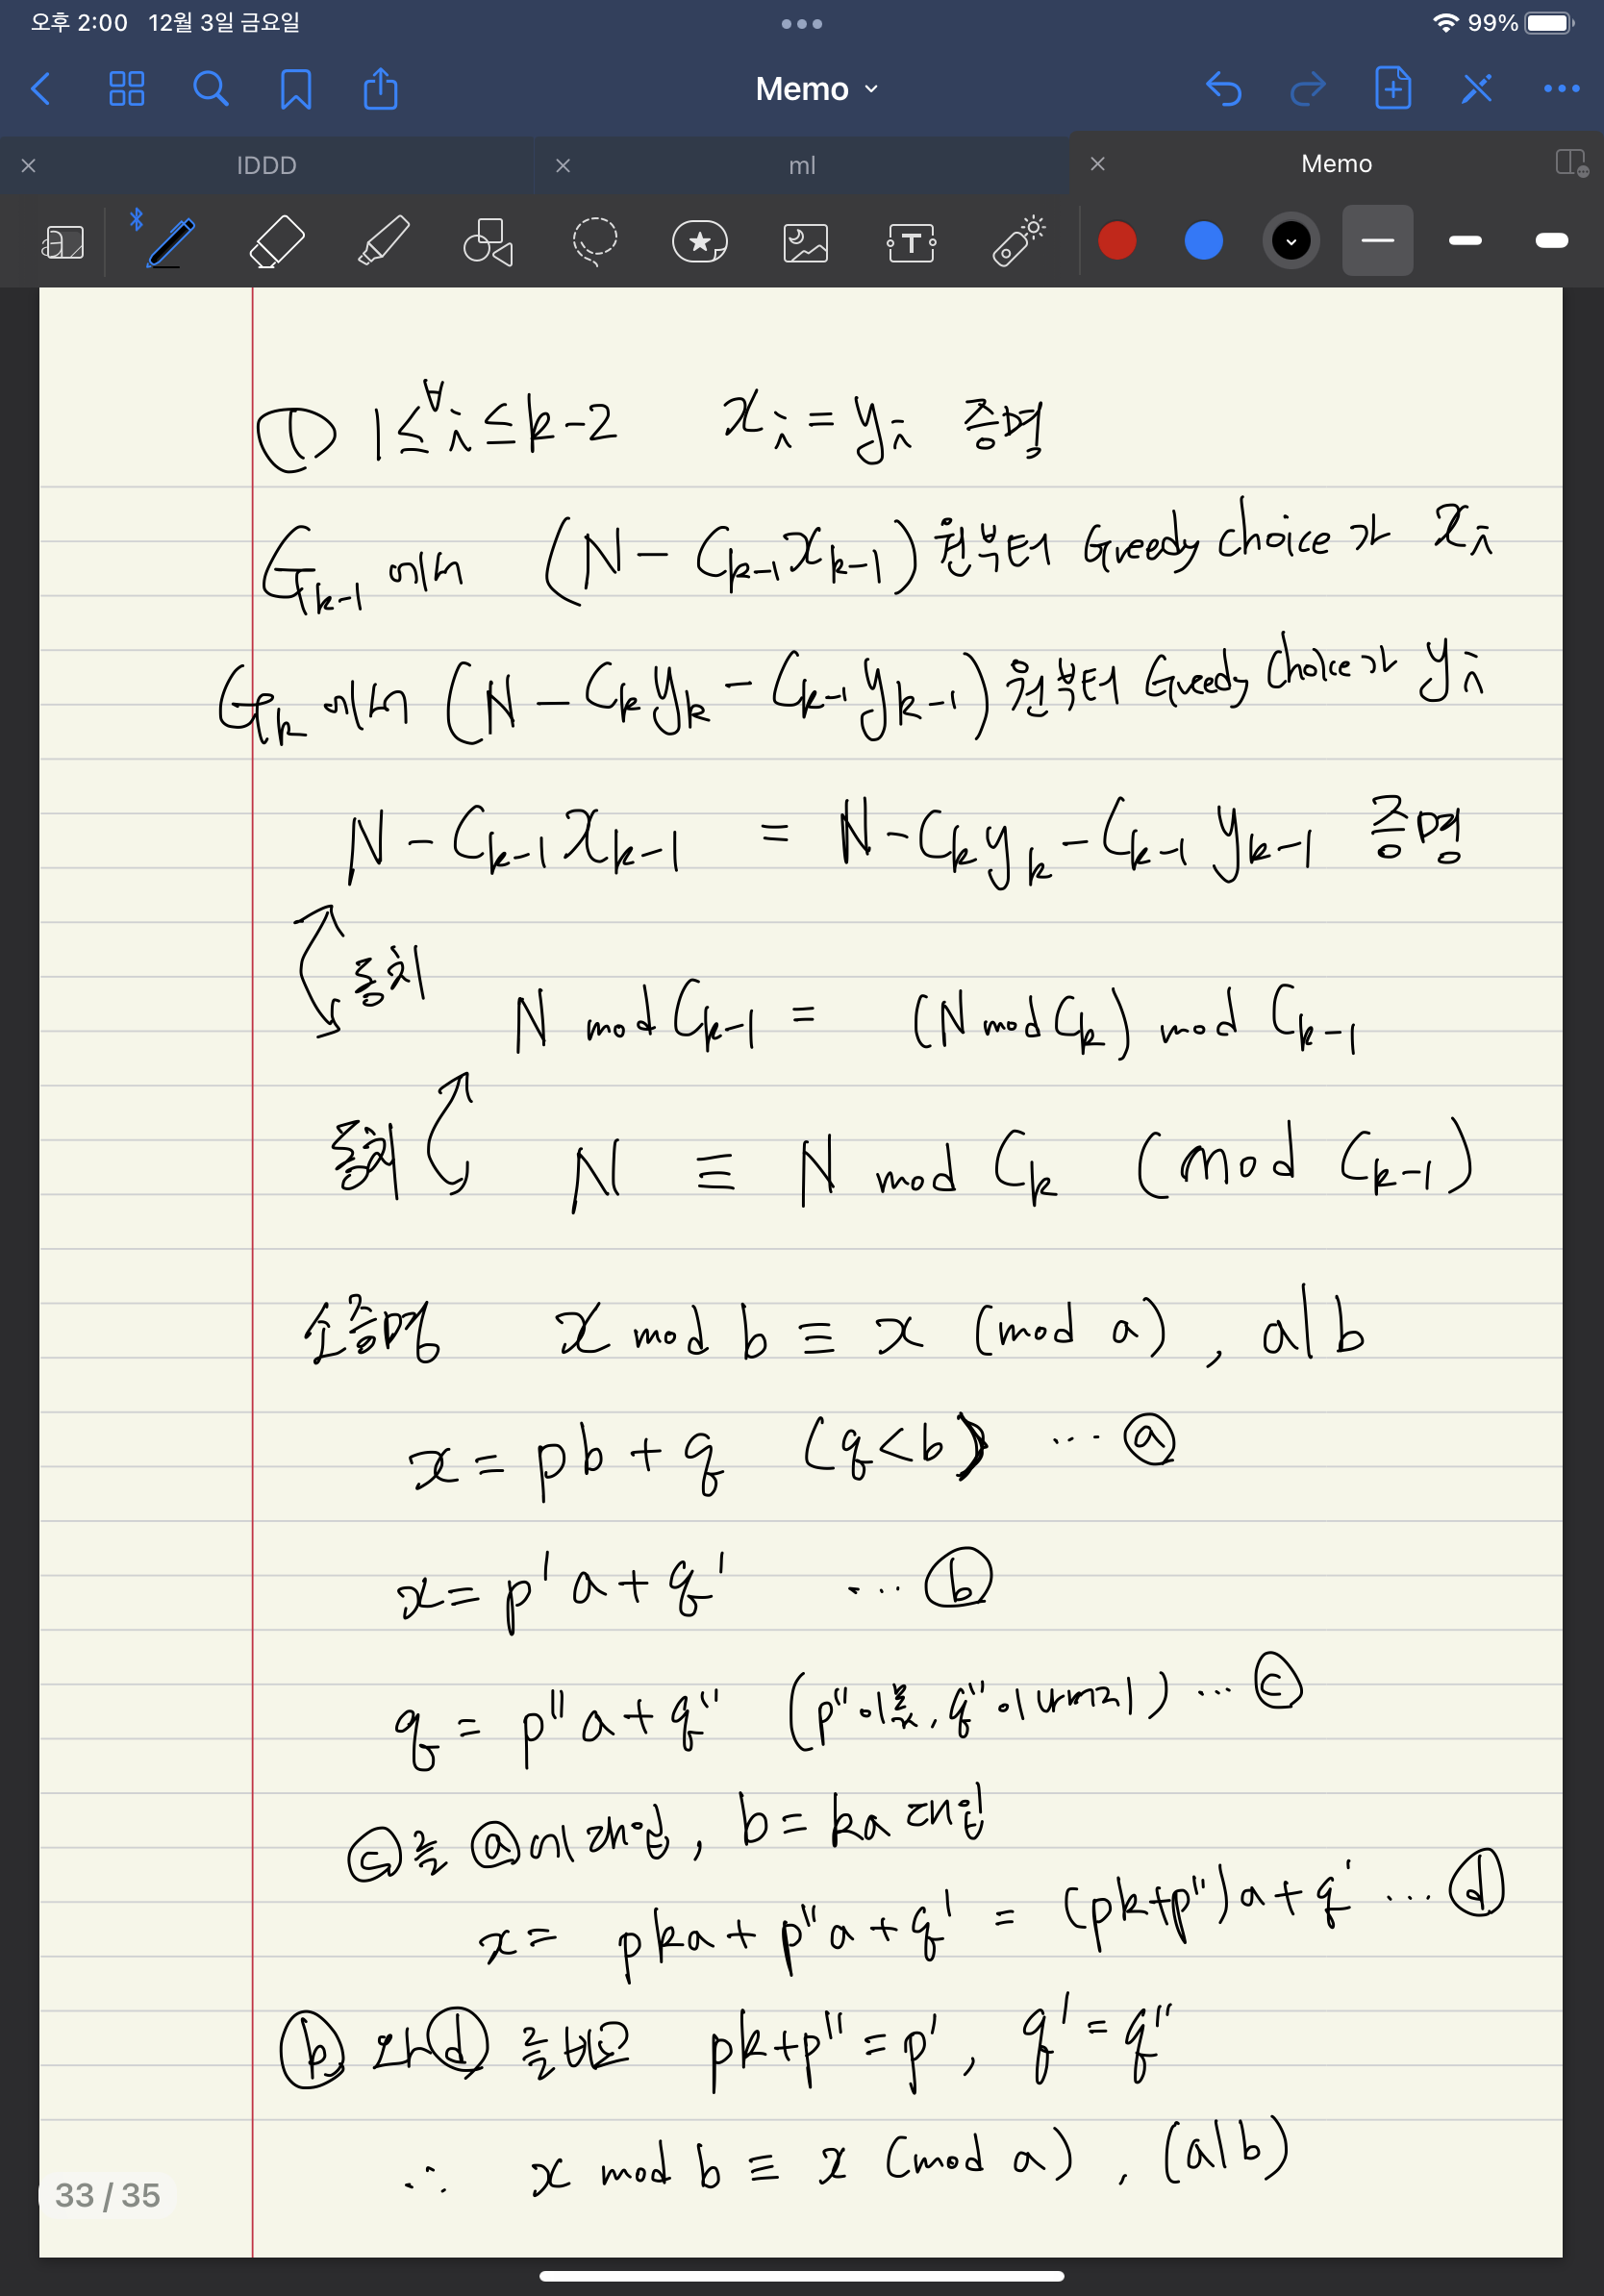 오후 2:00 12월 3일 금요일 99%
Memo
IDDD ml Memo
① 1≤∀i≤k-2 xᵢ = yᵢ 증명
G_{k-1} 에서 (N - C_{k-1}x_{k-1})원부터 Greedy choice가 xᵢ
G_k 에서 (N - C_k y_k - C_{k-1}y_{k-1})원부터 Greedy choice가 yᵢ
N - C_{k-1}x_{k-1} = N - C_k y_k - C_{k-1}y_{k-1} 증명
동치
N mod C_{k-1} = (N mod C_k) mod C_{k-1}
동치 N ≡ N mod C_k (mod C_{k-1})
소증명 x mod b ≡ x (mod a), a|b
x = pb + q (q<b) ... ⓐ
x = p'a + q' ... ⓑ
q = p''a + q'' (p''이 몫, q''이 나머지) ... ⓒ
ⓒ를 ⓐ에 대입, b = ka 대입
x = pka + p''a + q' = (pk+p'')a + q' ... ⓓ
ⓑ와 ⓓ를 비교 pk+p'' = p', q' = q''
∴ x mod b ≡ x (mod a), (a|b)
33 / 35